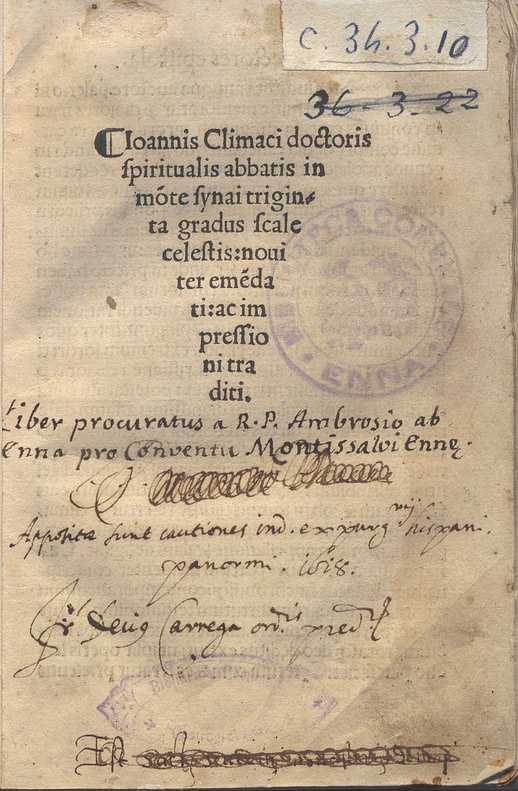 C. 34.3.10
36-3.22
Ioannis Climaci doctoris
spiritualis abbatis in
mōte synai trigin-
ta gradus scale
celestis:noui
ter emēda
ti:ac im
pressio
ni tra
diti.
Liber procuratus a R. P. Ambrosio ab
Enna pro Conventu Montissalvi Ennę.
Appositæ sunt cautiones ind. expurg hispani.
panormi. 1618.
Carrega ord.is pred.
ENNA
Est